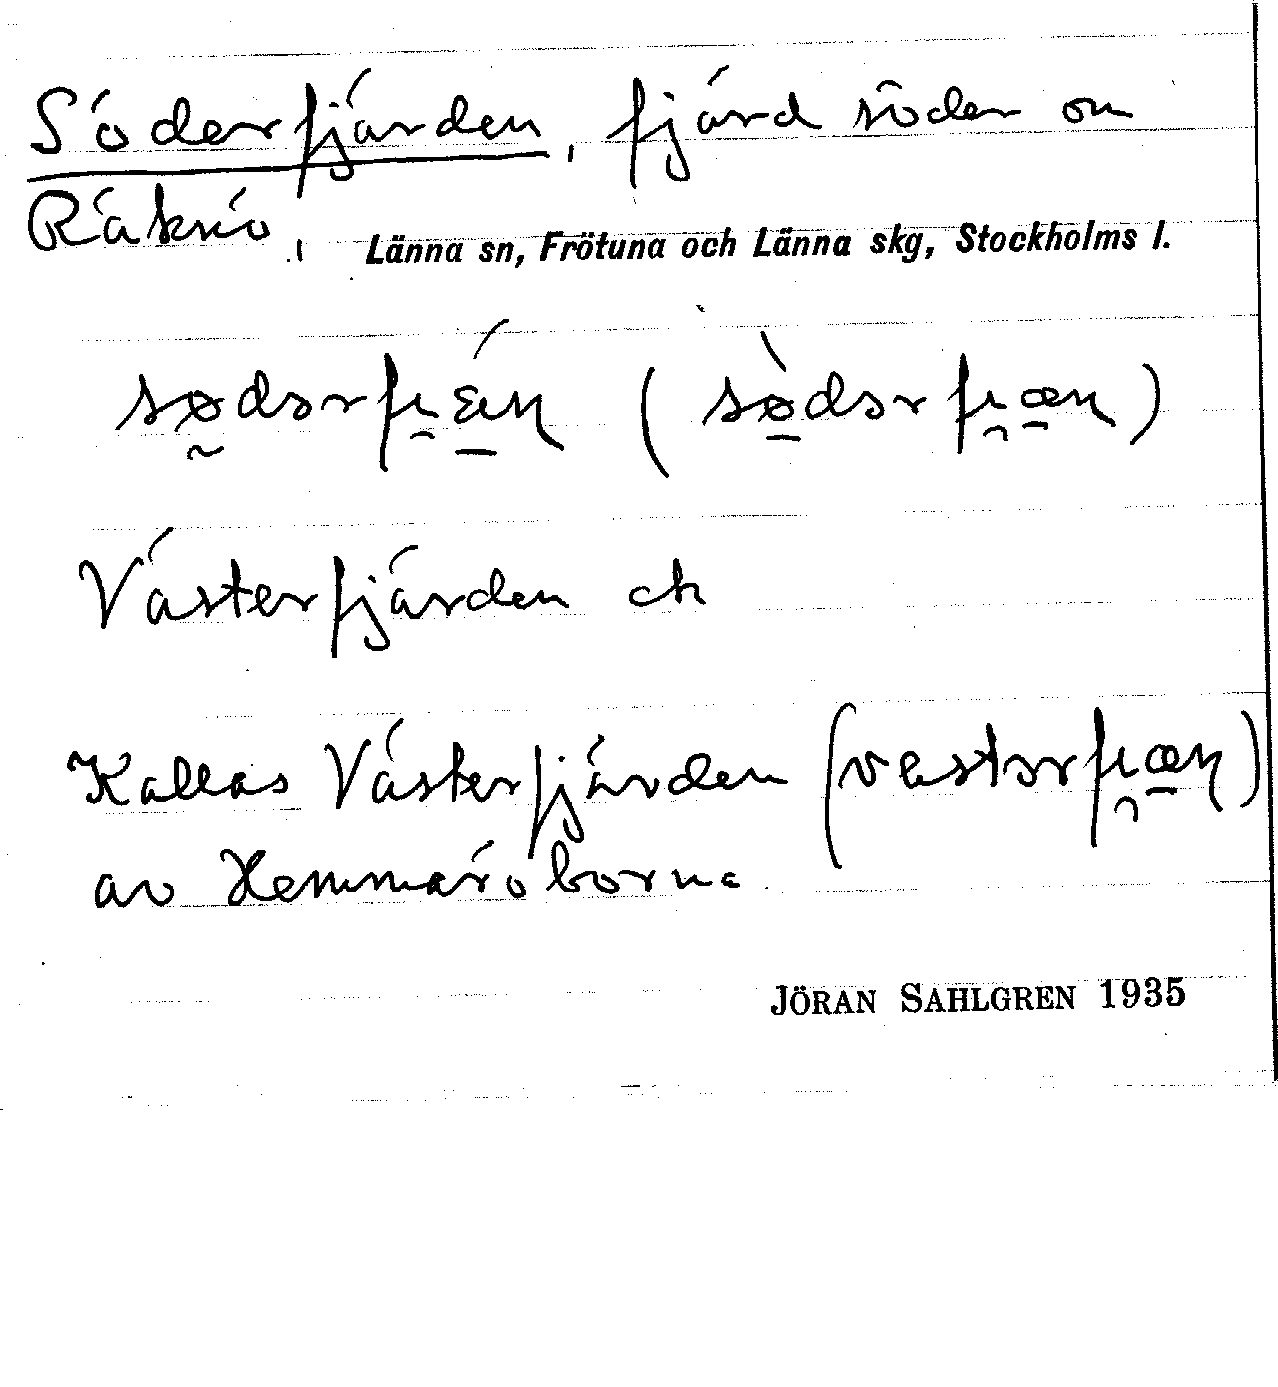 Söderfjärden, fjärd söder om
Räknö. Länna sn, Frötuna och Länna skg, Stockholms l.
sø̰dərfi̯ǽ̱ɳ (sø̱̀dərfi̯æ̱ɳ)
Västerfjärden ch
Kallas Västerfjärden (vestərfi̯æ̱ɳ)
av Hemmaröborna
JÖRAN SAHLGREN 1935